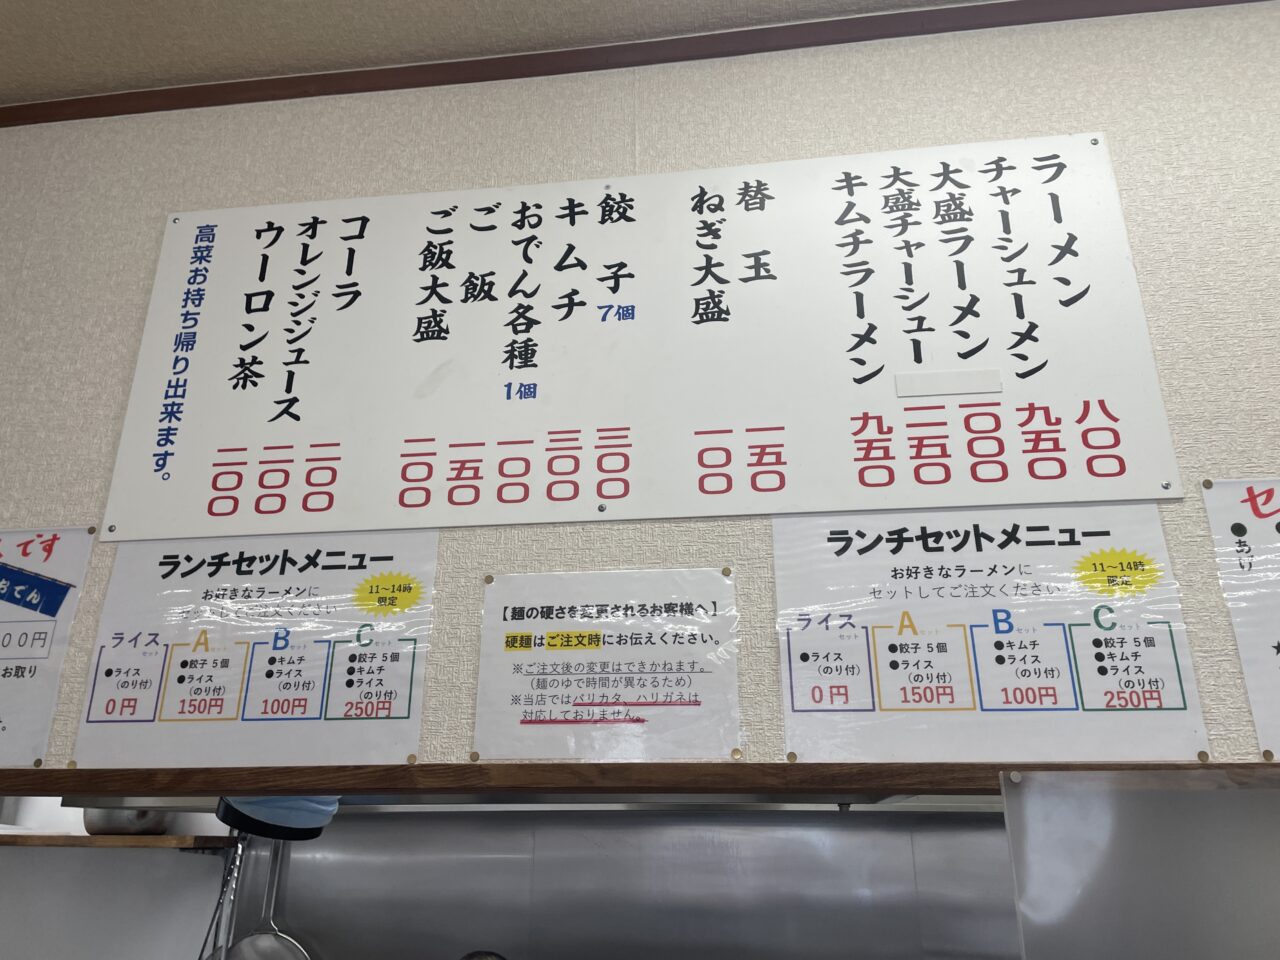 ラーメン 八〇〇
チャーシューメン 九五〇
大盛ラーメン 一〇〇〇
大盛チャーシュー 一一五〇
キムチラーメン 九五〇
替玉 一五〇
ねぎ大盛 一〇〇
餃子 7個 三〇〇
キムチ 三〇〇
おでん各種 1個 一〇〇
ご飯 一五〇
ご飯大盛 二〇〇
コーラ 二〇〇
オレンジジュース 二〇〇
ウーロン茶 二〇〇
高菜お持ち帰り出来ます。
です
おでん
００円
お取り
ランチセットメニュー
お好きなラーメンに
セットしてご注文ください
11～14時
限定
ライス
セット
●ライス
(のり付)
0円
A
セット
●餃子 5個
●ライス
(のり付)
150円
B
セット
●キムチ
●ライス
(のり付)
100円
C
セット
●餃子 5個
●キムチ
●ライス
(のり付)
250円
【麺の硬さを変更されるお客様へ】
硬麺はご注文時にお伝えください。
※ご注文後の変更はできかねます。
（麺のゆで時間が異なるため）
※当店ではバリカタ、ハリガネは
対応しておりません。
ランチセットメニュー
お好きなラーメンに
セットしてご注文ください
11～14時
限定
ライス
セット
●ライス
(のり付)
0円
A
セット
●餃子 5個
●ライス
(のり付)
150円
B
セット
●キムチ
●ライス
(のり付)
100円
C
セット
●餃子 5個
●キムチ
●ライス
(のり付)
250円
セ
●あげ